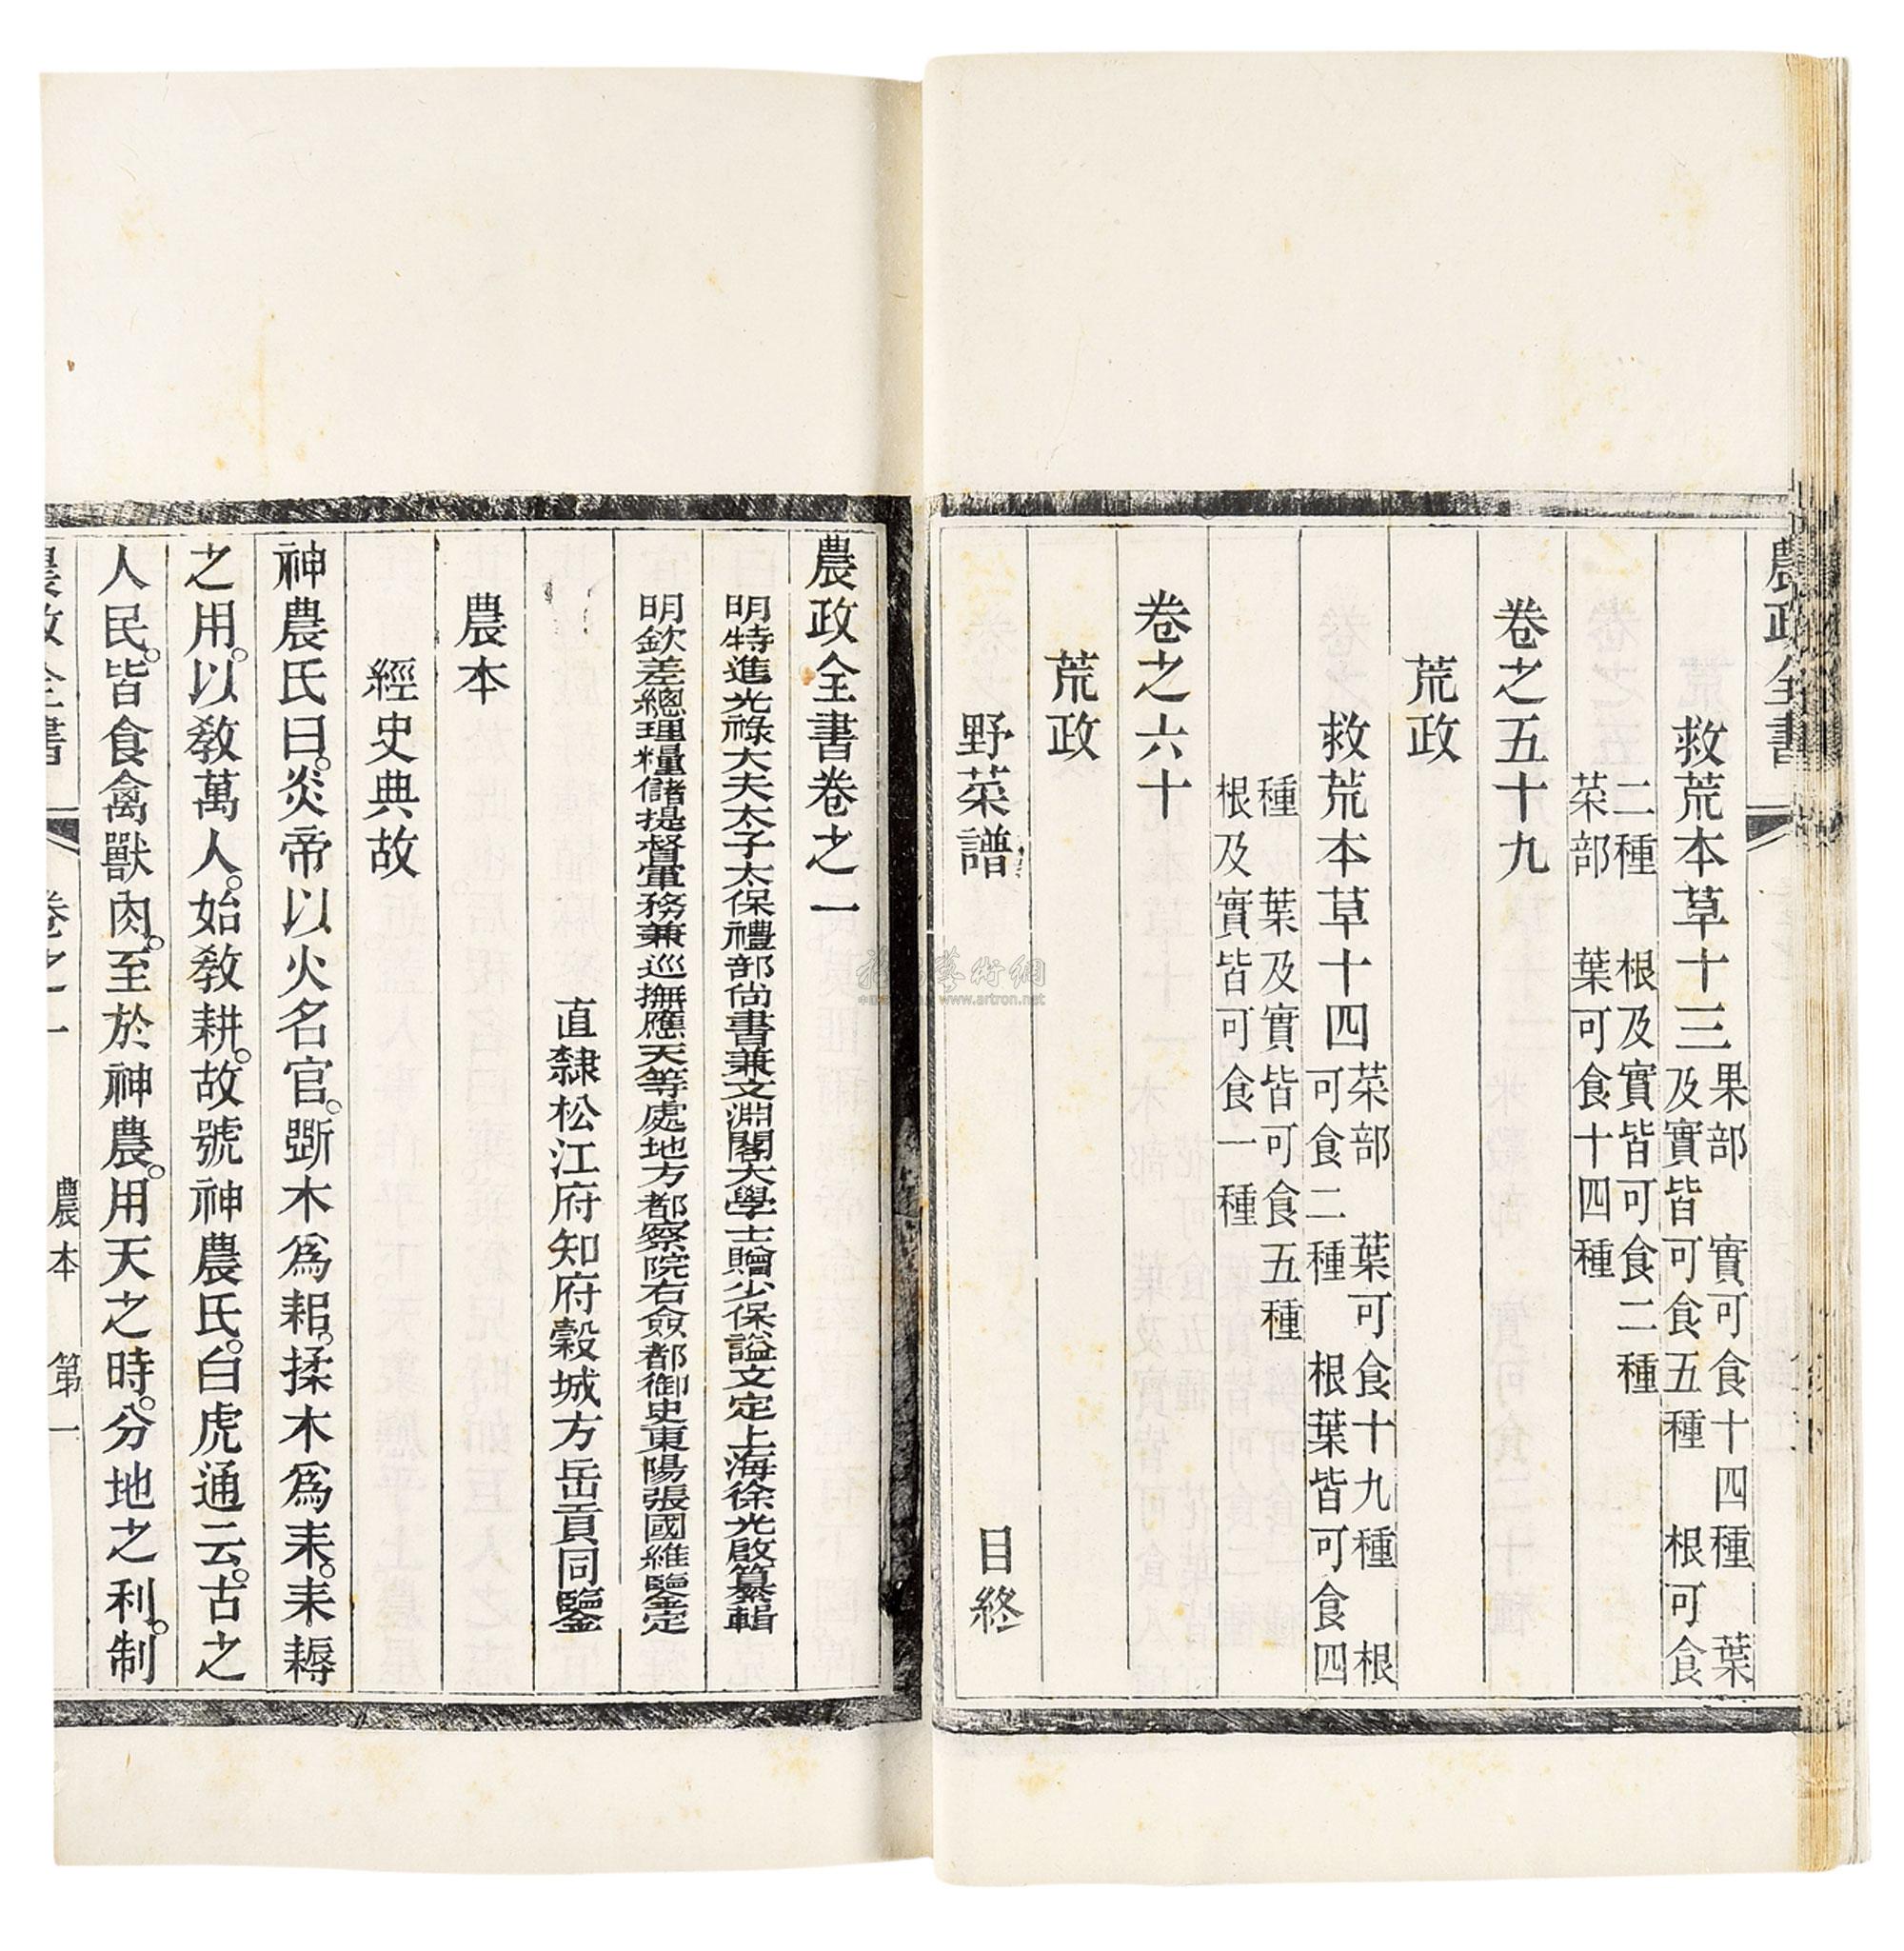 農政全書
救荒本草十三 果部 實可食十四種 葉
及實皆可食五種 根可食
二種 根及實皆可食二種
菜部 葉可食十四種
卷之五十九
荒政
救荒本草十四 菜部 葉可食十九種 根
可食二種 根葉皆可食四
種 葉及實皆可食五種
根及實皆可食一種
卷之六十
荒政
野菜譜 目終
農政全書卷之一
明特進光祿大夫太子太保禮部尚書兼文淵閣大學士贈少保謚文定上海徐光啟纂輯
明欽差總理糧儲提督軍務兼巡撫應天等處地方都察院右僉都御史東陽張國維鑒定
直隸松江府知府穀城方岳貢同鑒
農本
經史典故
神農氏曰。炎帝以火名官。斲木爲耜。揉木爲耒。耒耨
之用。以敎萬人。始敎耕。故號神農氏。白虎通云。古之
人民。皆食禽獸肉。至於神農。用天之時。分地之利。制
農政全書 卷之一 農本 第一
www.artron.net